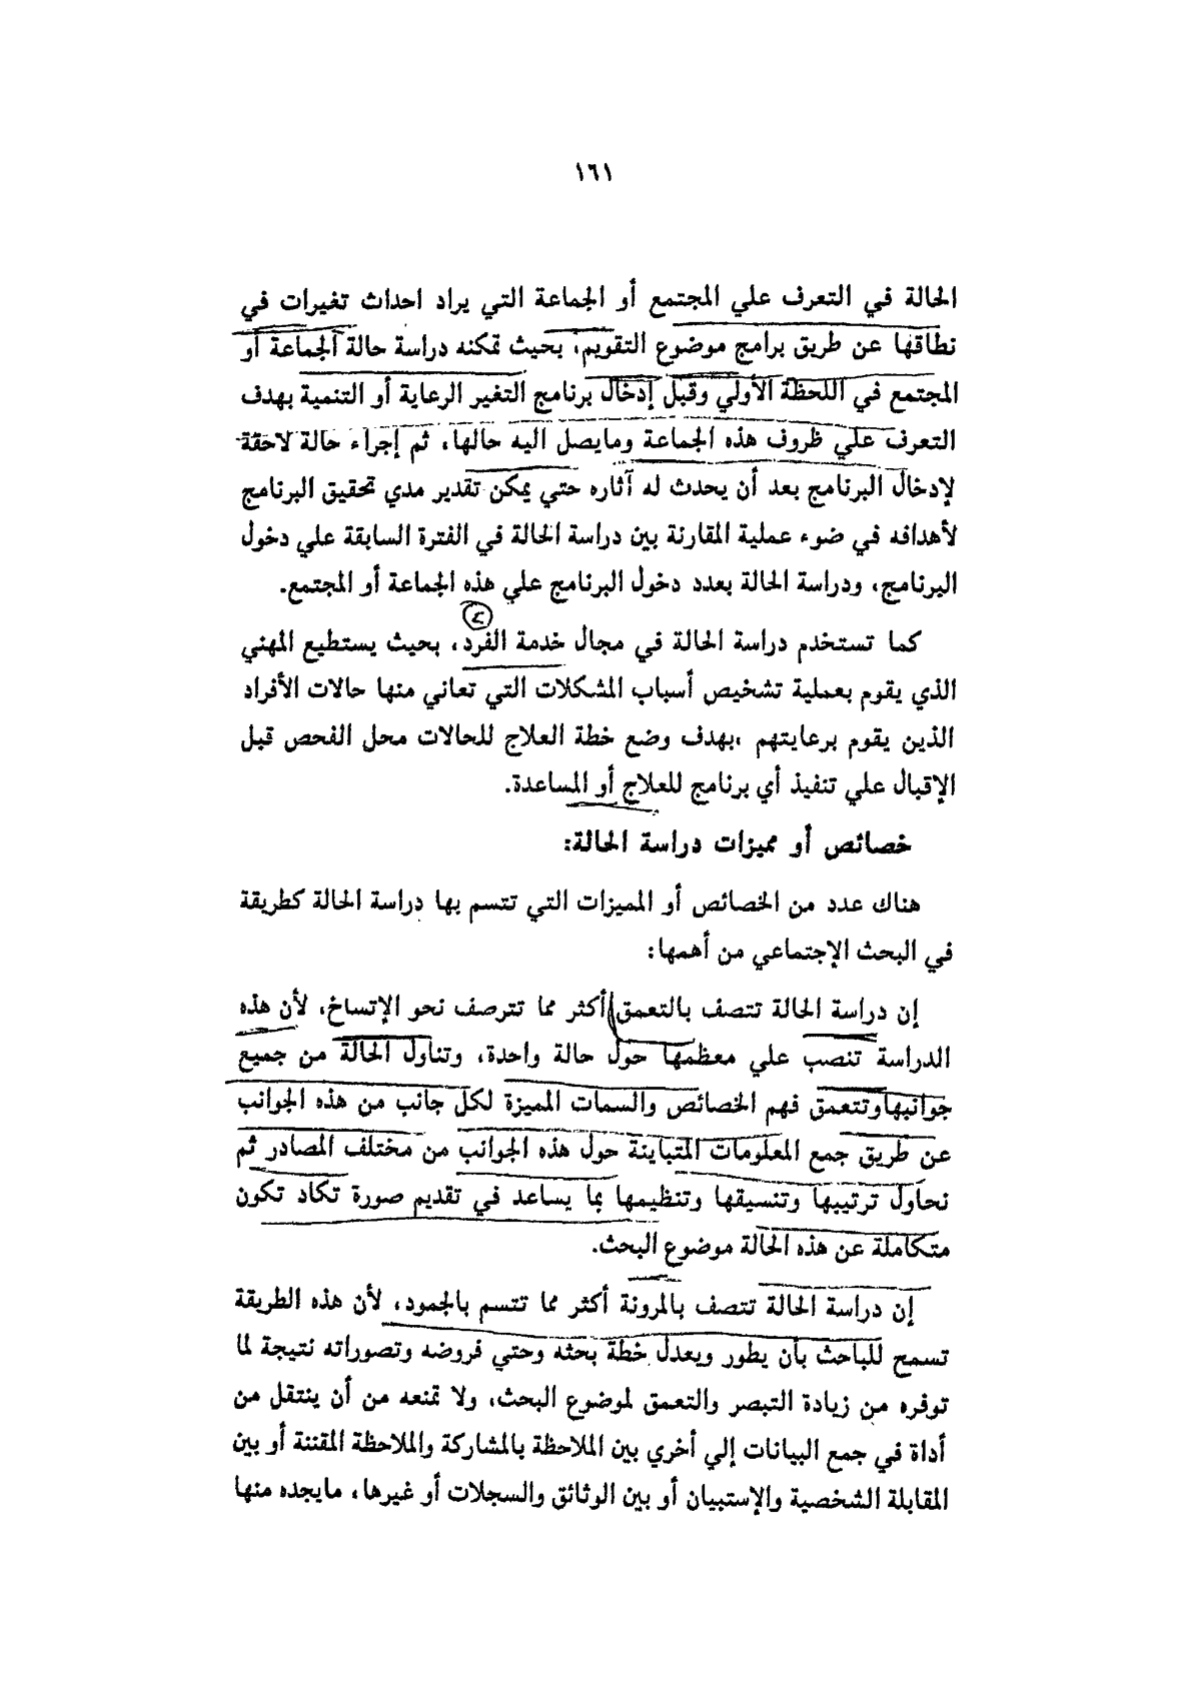 ١٦١
الحالة في التعرف علي المجتمع أو الجماعة التي يراد احداث تغيرات في
نطاقها عن طريق برامج موضوع التقويم، بحيث تمكنه دراسة حالة الجماعة أو
المجتمع في اللحظة الأولي وقبل إدخال برنامج التغير الرعاية أو التنمية بهدف
التعرف علي ظروف هذه الجماعة ومايصل اليه حالها، ثم إجراء حالة لاحقة
لإدخال البرنامج بعد أن يحدث له آثاره حتي يمكن تقدير مدي تحقيق البرنامج
لأهدافه في ضوء عملية المقارنة بين دراسة الحالة في الفترة السابقة علي دخول
البرنامج، ودراسة الحالة بعدد دخول البرنامج علي هذه الجماعة أو المجتمع.
كما تستخدم دراسة الحالة في مجال خدمة الفرد، بحيث يستطيع المهني
الذي يقوم بعملية تشخيص أسباب المشكلات التي تعاني منها حالات الأفراد
الذين يقوم برعايتهم ،بهدف وضع خطة العلاج للحالات محل الفحص قبل
الإقبال علي تنفيذ أي برنامج للعلاج أو المساعدة.
خصائص أو مميزات دراسة الحالة:
هناك عدد من الخصائص أو المميزات التي تتسم بها دراسة الحالة كطريقة
في البحث الإجتماعي من أهمها:
إن دراسة الحالة تتصف بالتعمق أكثر مما تترصف نحو الإتساخ، لأن هذه
الدراسة تنصب علي معظمها حول حالة واحدة، وتناول الحالة من جميع
جوانبها وتتعمق فهم الخصائص والسمات المميزة لكل جانب من هذه الجوانب
عن طريق جمع المعلومات المتباينة حول هذه الجوانب من مختلف المصادر ثم
نحاول ترتيبها وتنسيقها وتنظيمها بما يساعد في تقديم صورة تكاد تكون
متكاملة عن هذه الحالة موضوع البحث.
إن دراسة الحالة تتصف بالمرونة أكثر مما تتسم بالجمود، لأن هذه الطريقة
تسمح للباحث بأن يطور ويعدل خطة بحثه وحتي فروضه وتصوراته نتيجة لما
توفره من زيادة التبصر والتعمق لموضوع البحث، ولا تمنعه من أن ينتقل من
أداة في جمع البيانات إلي أخري بين الملاحظة بالمشاركة والملاحظة المقننة أو بين
المقابلة الشخصية والإستبيان أو بين الوثائق والسجلات أو غيرها، مايجده منها